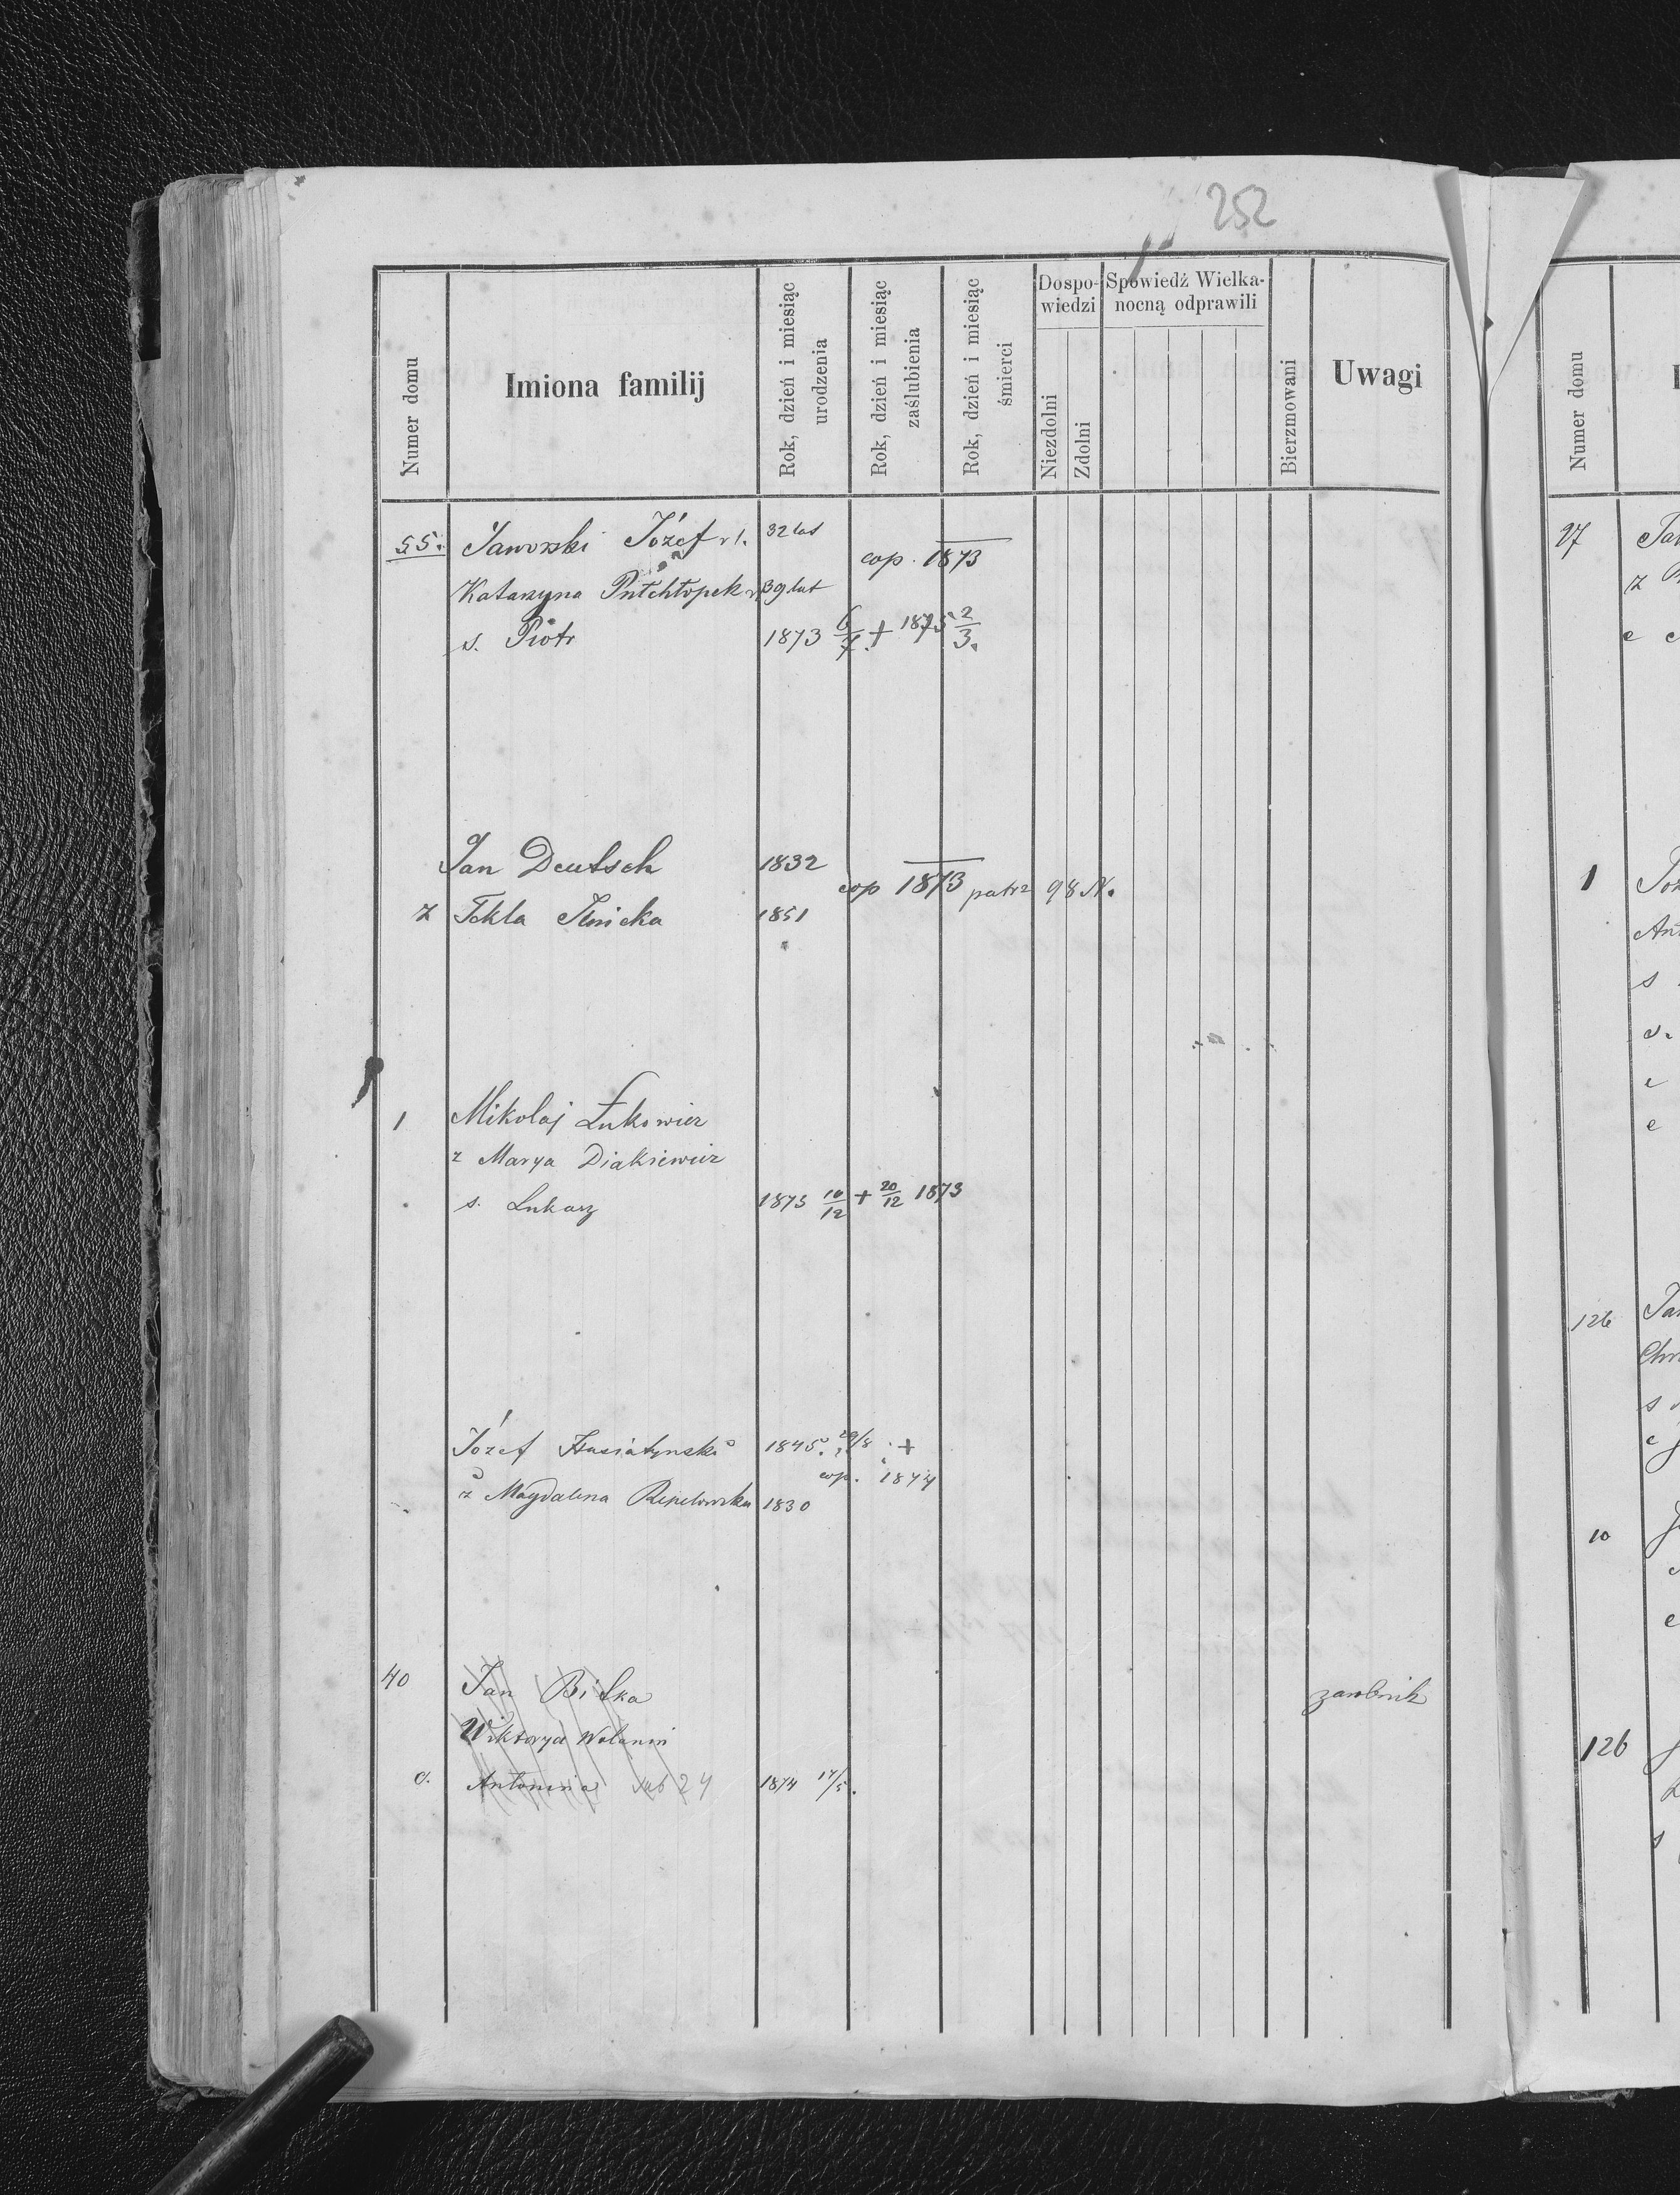 252
Numer domu
Imiona familij
Rok, dzień i miesiąc urodzenia
Rok, dzień i miesiąc zaślubienia
Rok, dzień i miesiąc śmierci
Dospowiedzi
Niezdolni
Zdolni
Spowiedź Wielkanocną odprawili
Bierzmowani
Uwagi
55. Jaworski Józef 32 lat
cop. 1873
Katarzyna 39 lat
s. Piotr 1873 6/7 + 1875 2/3.
Jan Deutsch 1832
cop 1873 patrz 98 N.
z Tekla 1851
1 Mikolaj Łukowicz
z Marya Diakiewicz
s. Lukasz 1873 10/12 + 20/12 1873
Józef Husiatynski 1845. 29/8 +
cop. 1874
z Magdalena 1830
40 Jan zarobnik
Wiktorya
c. Antonina sub 24 1874 17/5.
Numer domu
27
1
126
10
126